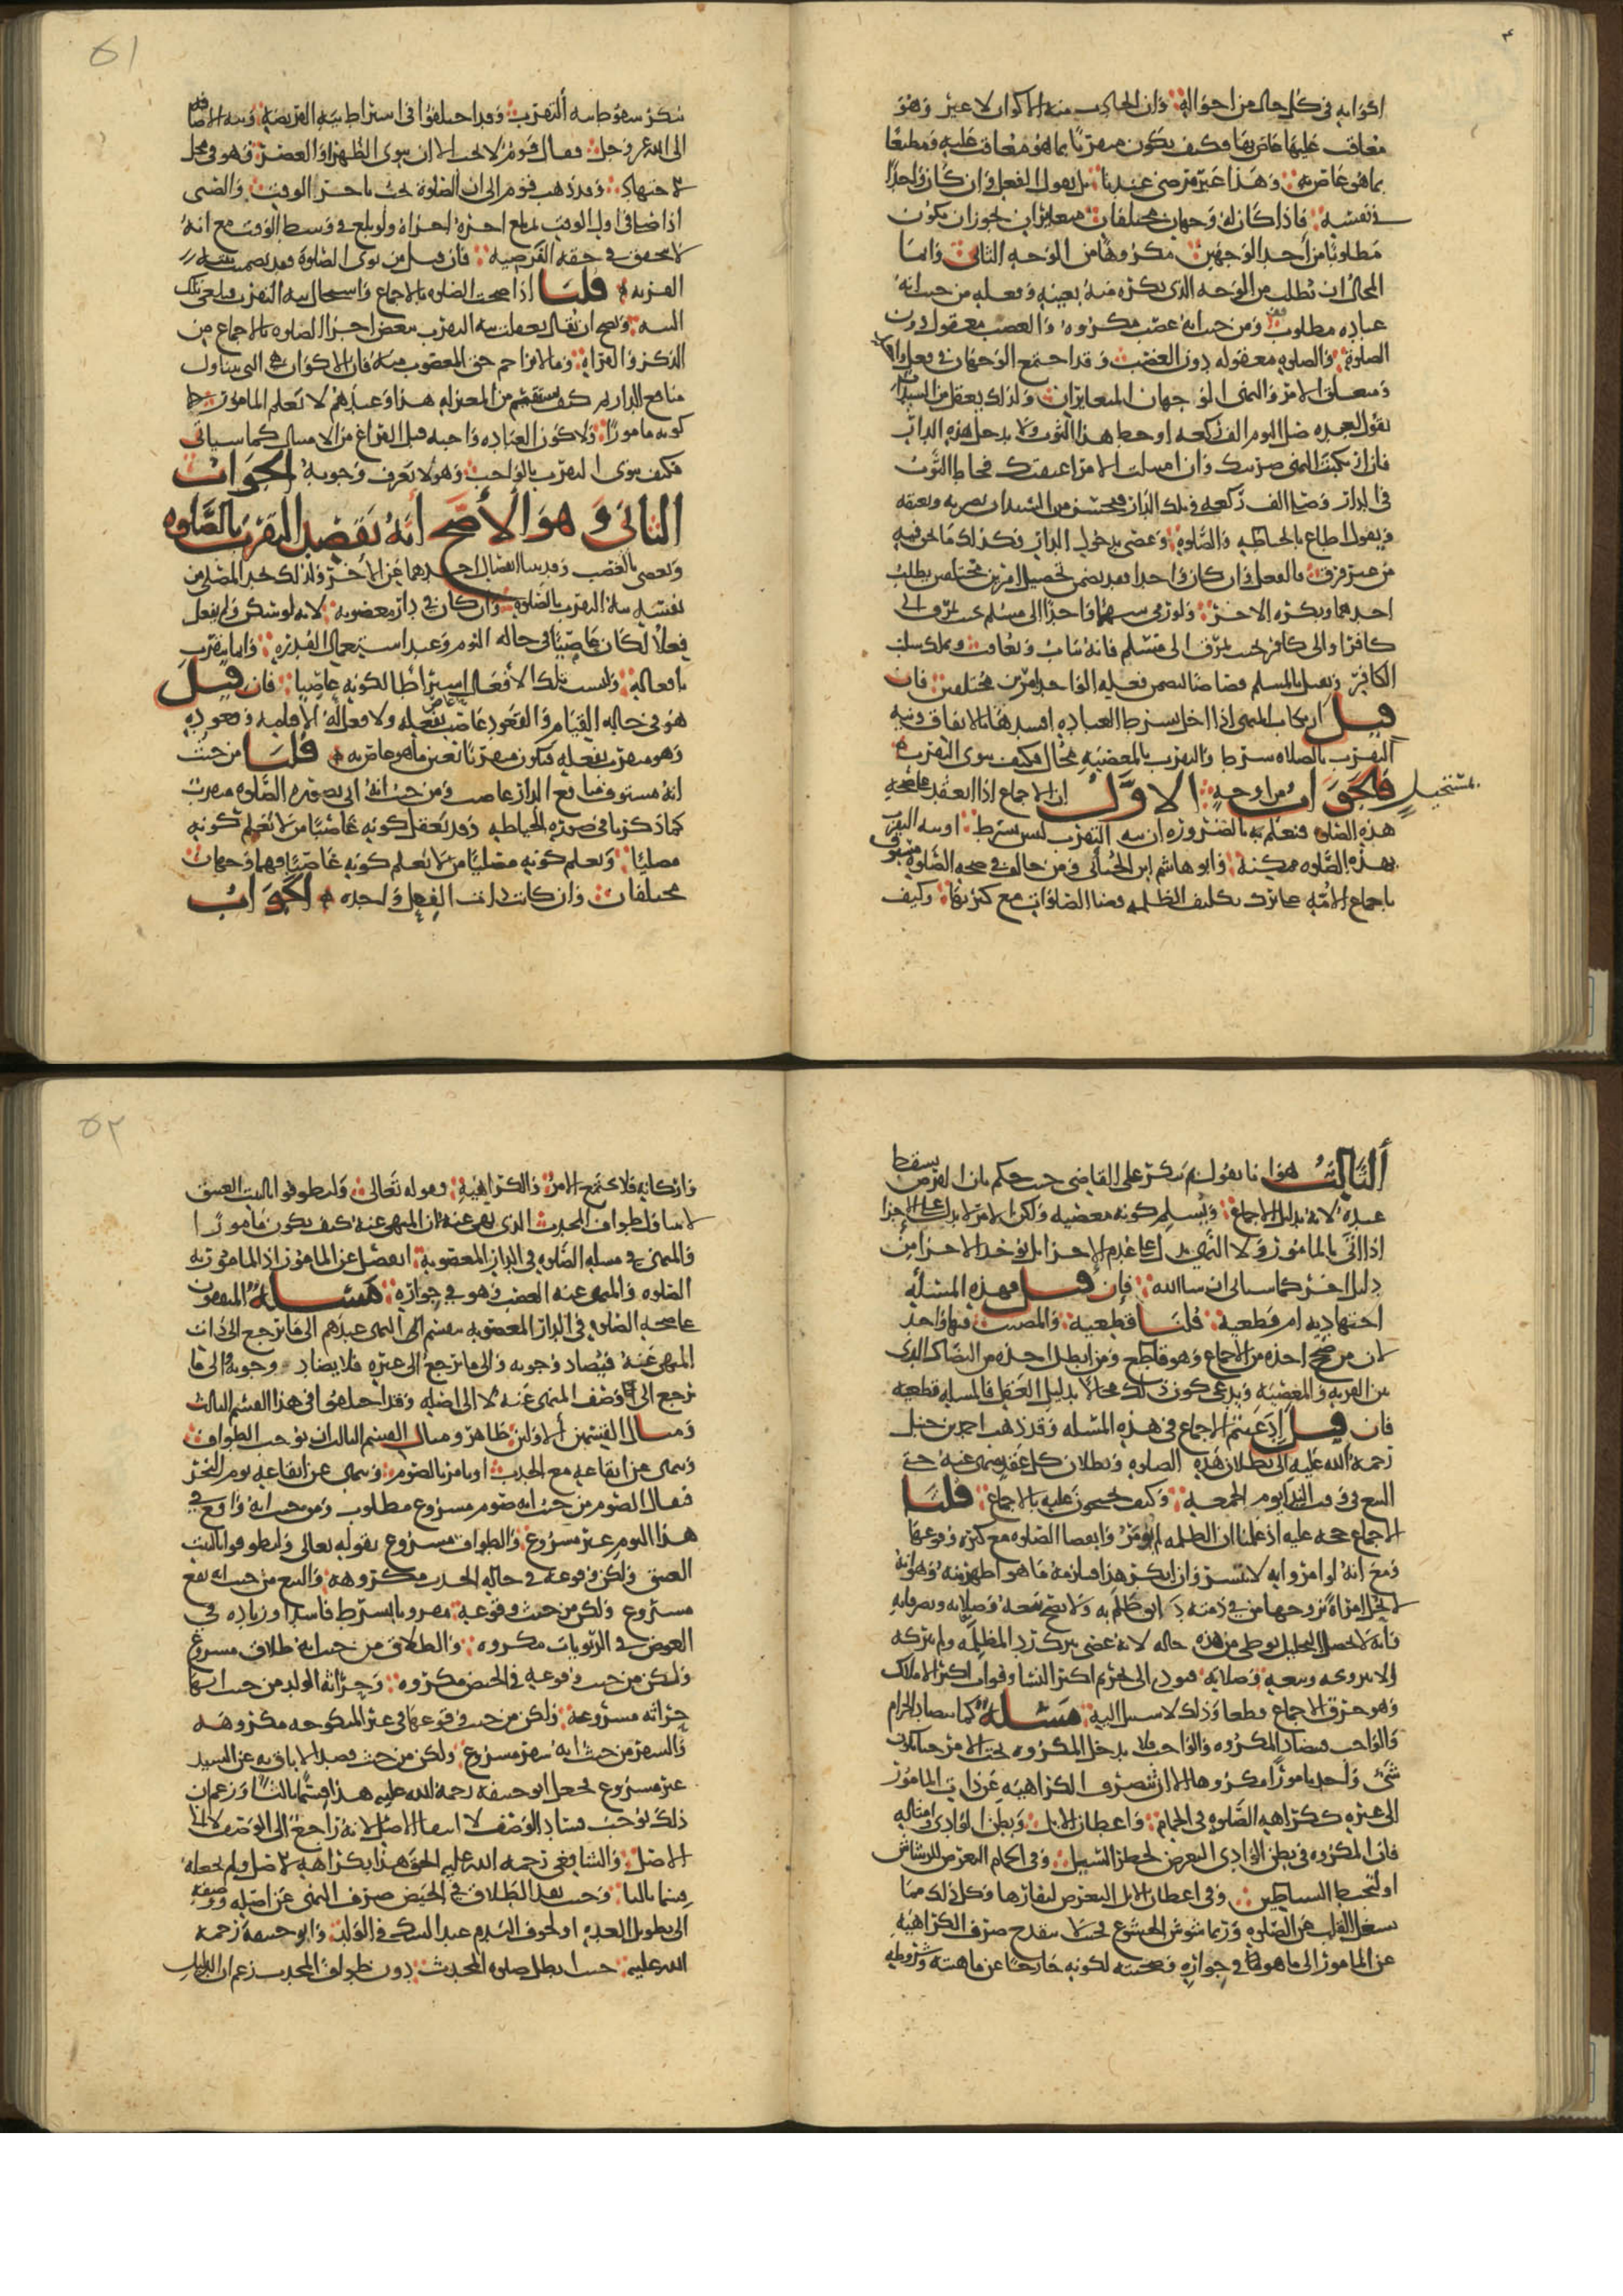 اكوانه في كل حال من احواله وان الحادث منه الاكوان لا غير وهو
معاقب عليها عاص بها فكيف يكون متقربا بما هو معاقب عليه ومطيعا
بما هو عاص به وهذا غير مرضي عندنا بل نقول الفعل وان كان واحدا
في نفسه فاذا كان له وجهان مختلفان متغايران يجوز ان يكون
مطلوبا من احد الوجهين مكروها من الوجه الثاني وانما
المحال ان يطلب من الوجه الذي يكره منه بعينه وفعله من حيث انه
عباده مطلوب ومن حيث انه غصب مكروه والغصب معقول دون
الصلوه والصلوه معقوله دون الغصب وقد اجتمع الوجهان في فعل واحد
ومتعلق الامر والنهي الوجهان المتغايران وكذلك يعقل من السيد ان
يقول لعبده صل اليوم الف ركعه او خط هذا الثوب ولا تدخل هذه الدار
فان ارتكبت النهي ضربتك وان امتثلت الامر اعتقتك فخاط الثوب
في الدار وصلى الف ركعه في تلك الدار فيحسن من السيد ان يضربه ويعتقه
ويقول اطاع بالخياطه والصلوه وعصى بدخول الدار فكذلك ما نحن فيه
من غير فرق فالفعل وان كان واحدا فقد تضمن تحصيل امرين مختلفين يطلب
احدهما ويكره الاخر ولو رمى سهما واحدا الى مسلم بحيث يمرق الى
كافر او الى كافر بحيث يمرق الى مسلم فانه يثاب ويعاقب ويملك سلب
الكافر ويقتل بالمسلم قصاصا لتضمن فعله الواحد امرين مختلفين فان
قيل ارتكاب المنهي اذا اخل بشرط العباده افسدها بالاتفاق ونيه
التقرب بالصلاه شرط والتقرب بالمعصيه محال فكيف ينوى التقرب
فالجواب من اوجه الاول ان الاجماع اذا انعقد على صحه
مستحيل
هذه الصلوه فنعلم به بالضروره ان نيه التقرب ليس بشرط او نيه التقرب
بهذه الصلوه ممكنه وابو هاشم ابن الجبائي ومن خالف في صحه الصلوه مسبوق
باجماع الامه على ترك تكليف الظلمه قضا الصلوات مع كثرتها وكيف
٥١
ينكر سقوط نيه التقرب وقد اختلفوا في اشتراط نيه الفرضيه ونيه الاضافه
الى الله عز وجل فقال قوم لا يجب الا ان ينوى الظهر او العصر فهو في محل
الاجتهاد وقد ذهب قوم الى ان الصلوة تجب باخر الوقت والصبي
اذا صلى في اول الوقت ثم بلغ اخره اجزاه ولو بلغ في وسط الوقت مع انه
لا يتحقق في حقه الفرضيه فان قيل من نوى الصلوة فقد تضمنت نيته
القربه قلنا اذا صحت الصلوه بالاجماع واستحال نيه التقرب فتلغى تلك
النيه ويصح ان يقال تعلقت نيه التقرب ببعض اجزا الصلوه بالاجماع من
الذكر والقراه وما لا يزاحم حق المغصوب منه فان الاكوان هي التي تتناول
منافع الدار ثم كيف يستقيم من المعتزله هذا وعندهم لا يعلم المامور
كونه مامورا ولا كون العباده واجبه قبل الفراغ من الامتثال كما سياتي
فكيف ينوى التقرب بالواجب وهو لا يعرف وجوبه الجواب
الثاني وهو الاصح انه يقصد التقرب بالصلوه
ويعصى بالغصب وقد بينا انفصال احدهما عن الاخر ولذلك يجد المصلى من
نفسه نيه التقرب بالصلوه وان كان في دار مغصوبه لانه لو سكن ولم يفعل
فعلا لكان غاصبا في حاله النوم وعند استعمال القدره وانما يتقرب
بافعاله وليست تلك الافعال اشتراطا لكونه غاصبا فان قيل
هو في حاله القيام والقعود غاصب بفعله ولا فعل له الا قيامه وقعوده
وهو متقرب بفعله فيكون متقربا بعين ما هو عاص به قلنا من حيث
انه مستوف منافع الدار غاصب ومن حيث انه اتى بصوره الصلوه متقرب
كما ذكرنا في صوره الخياطه وقد يعقل كونه غاصبا من لا يعلم كونه
مصليا ويعلم كونه مصليا من لا يعلم كونه غاصبا فهما وجهان
مختلفان وان كانت ذات الفعل واحده الجواب
الثالث هو انا نقول بم تنكر على القاضي حيث حكم بان الفرض يسقط
عنده لا به بدليل الاجماع ويسلم كونه معصيه ولكن الامر لا يدل على الاجزا
اذا اتى بالمامور ولا النهي يدل على عدم الاجزا بل يوخذ الاجزا من
دليل اخر كما سياتي ان شا الله فان قيل فهذه المسئله
اجتهاديه ام قطعيه قلنا قطعيه والمصيب فيها واحد
لان من صحح اخذه من الاجماع وهو قاطع ومن ابطل اخذه من التضاد الذي
بين القربه والمعصيه ويدعى كون ذلك محالا بدليل العقل فالمساله قطعيه
فان قيل ادعيتم الاجماع في هذه المسئله وقد ذهب احمد بن حنبل
رحمه الله عليه الى بطلان هذه الصلوه وبطلان كل عقد منهى عنه حتى
البيع في وقت الندا يوم الجمعه وكيف تحتجون عليه بالاجماع قلنا
الاجماع حجه عليه اذ علمنا ان الظلمه لم يومر وا بقضا الصلوه مع كثره وقوعها
ومع انه لو امروا به لانتشر وان انكر هذا فيلزمه ما هو اظهر منه وهو انه
لا تحل امراه تزوجها من في ذمته دانق ظلم به ولا يصح بيعه وصلاته وتصرفاته
وانه لا يحصل التحليل بوطى من هذه حاله لانه عصى بترك رد المظلمه ولم يتركه
الا بتزوجه وبيعه وصلاته فيودي الى تحريم اكثر النسا وفوات اكثر الاملاك
وهو خرق الاجماع قطعا وذلك لا سبيل اليه مسئله كما يتضاد الحرام
والواجب فيتضاد المكروه والواجب فلا يدخل المكروه تحت الامر حتى يكون
شي واحد مامورا مكروها الا ان تنصرف الكراهيه عن ذات المامور
الى غيره ككراهيه الصلوه في الحمام واعطان الابل وبطن الوادي وامثاله
فان المكروه في بطن الوادي التعرض لخطر السيل وفي الحمام التعرض للرشاش
او لتخبط الشياطين وفي اعطان الابل التعرض لنفارها وكل ذلك مما
يشغل القلب عن الصلوه وربما شوش الخشوع بحيث لا ينقدح صرف الكراهيه
عن المامور الى ما هو في جواره وصحبته لكونه خارجا عن ماهيته وشروطه
٥٢
واركانه فلا يجتمع الامر والكراهيه وقوله تعالى وليطوفوا بالبيت العتيق
لا يتناول طواف المحدث الذي نهى عنه لان المنهى عنه كيف يكون مامورا
والمنهى في مسله الصلوه في الدار المغصوبه انفصل عن المامور اذ المامور به
الصلوه والمنهى عنه الغصب وهو في جواره مسئله المتفقون
على صحه الصلوه في الدار المغصوبه ينقسم النهى عندهم الى ما يرجع الى ذات
المنهى عنه فيضاد وجوبه والى ما يرجع الى غيره فلا يضاد وجوبه والى ما
يرجع الى وصف المنهى عنه لا الى اصله وقد اختلفوا في هذا القسم الثالث
ومثال القسمين الاولين ظاهر ومثال القسم الثالث ان يوجب الطواف
وينهى عن ايقاعه مع الحدث او يامر بالصوم وينهى عن ايقاعه يوم النحر
فيقال الصوم من حيث انه صوم مشروع مطلوب ومن حيث انه واقع في
هذا اليوم غير مشروع والطواف مشروع بقوله تعالى وليطوفوا بالبيت
العتيق ولكن وقوعه في حاله الحدث مكروهه والبيع من حيث انه بيع
مشروع ولكن من حيث وقوعه مقرونا بشرط فاسد او زياده في
العوض في الربويات مكروه والطلاق من حيث انه طلاق مشروع
ولكن من حيث وقوعه في الحيض مكروه وحراثه الولد من حيث انها
حراثه مشروعه ولكن من حيث وقوعها في غير المنكوحه مكروهه
والسفر من حيث انه سفر مشروع ولكن من حيث قصد الاباق به عن السيد
غير مشروع فجعل ابو حنيفه رحمه الله عليه هذا قسما ثالثا وزعم ان
ذلك يوجب فساد الوصف لا انتفا الاصل لانه راجع الى الوصف لا الى
الاصل والشافعي رحمه الله عليه الحق هذا بكراهه الاصل ولم يجعله
قسما ثالثا وحيث نفذ الطلاق في الحيض صرف النهى عن اصله ووصفه
الى تطويل العده او لخوف الندم عند الشك في الولد وابو حنيفة رحمه
الله عليه حيث ابطل صلوه المحدث دون طواف المحدث زعم ان الدليل